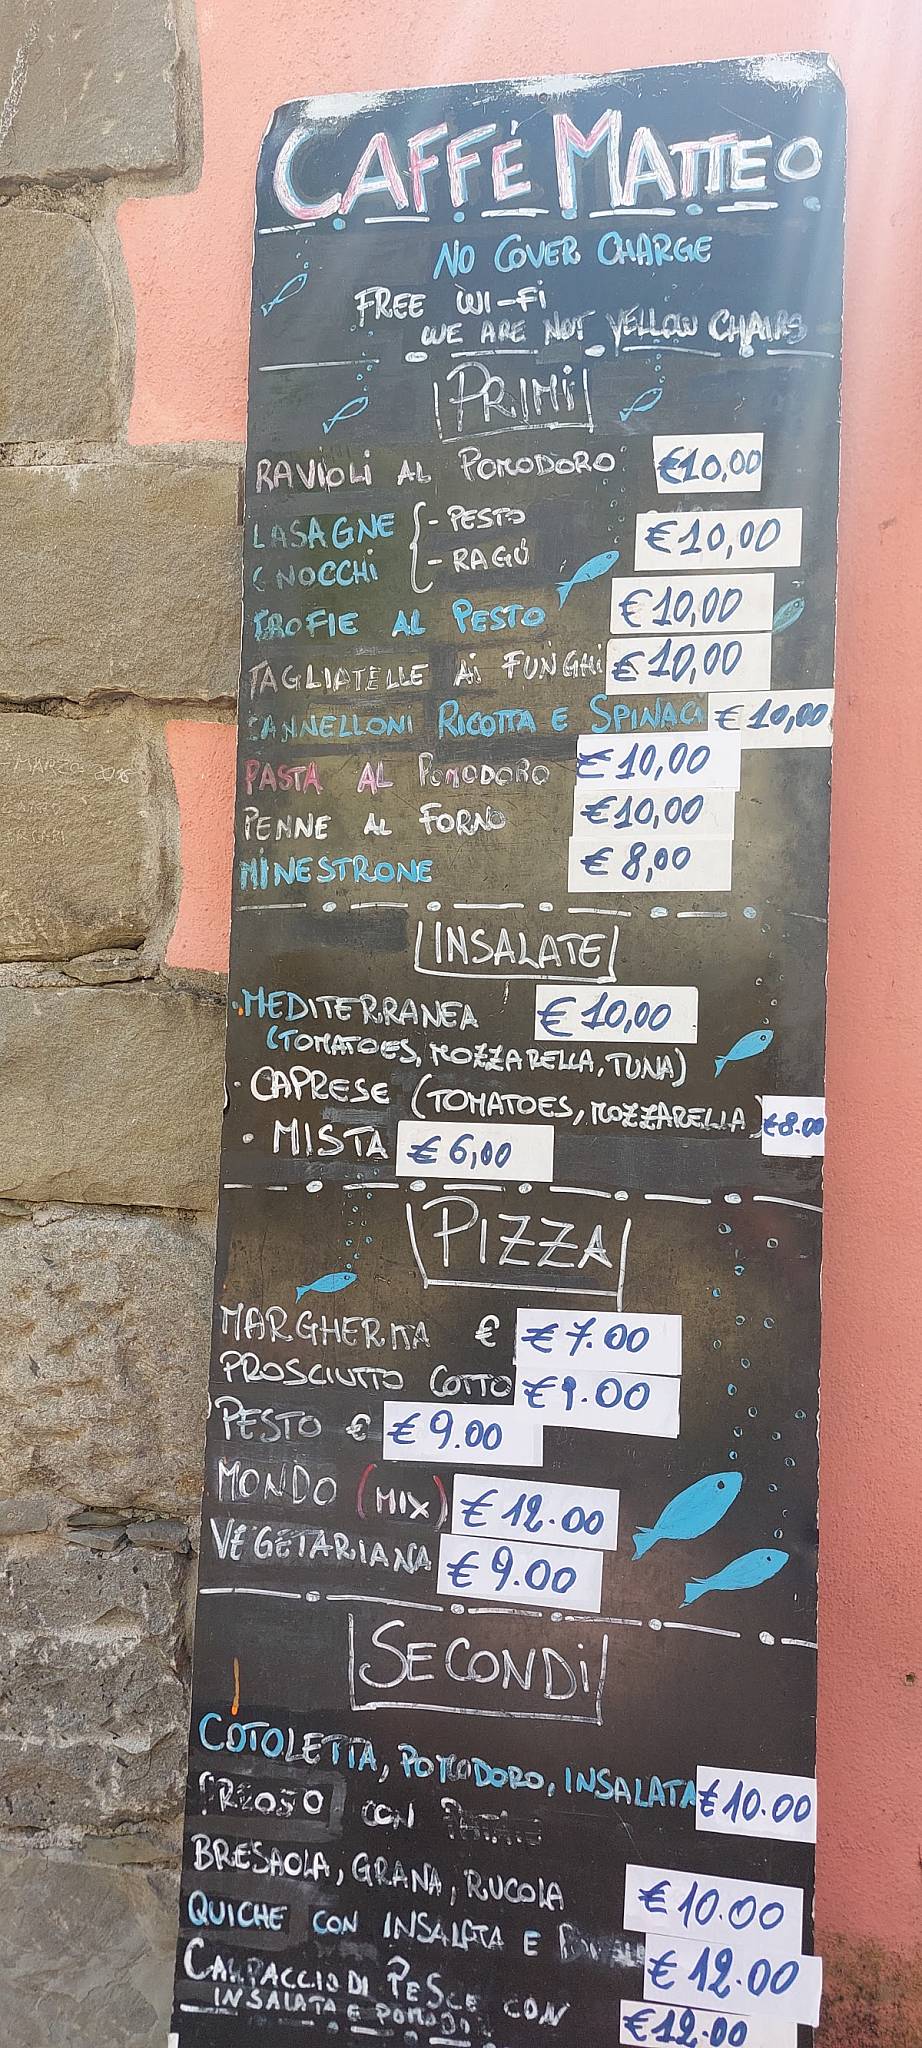 CAFFÉ MATTEO
NO COVER CHARGE
FREE WI-FI
WE ARE NOT YELLOW CHAIRS
PRIMI
RAVIOLI AL POMODORO €10,00
LASAGNE - PESTO €10,00
GNOCCHI - RAGÙ
TROFIE AL PESTO €10,00
TAGLIATELLE AI FUNGHI €10,00
CANNELLONI RICOTTA E SPINACI €10,00
PASTA AL POMODORO €10,00
PENNE AL FORNO €10,00
MINESTRONE €8,00
INSALATE
• MEDITERRANEA €10,00
(TOMATOES, MOZZARELLA, TUNA)
• CAPRESE (TOMATOES, MOZZARELLA) €8.00
• MISTA €6,00
PIZZA
MARGHERITA € €7.00
PROSCIUTTO COTTO €9.00
PESTO € €9.00
MONDO (MIX) €12.00
VEGETARIANA €9.00
SECONDI
COTOLETTA, POMODORO, INSALATA €10.00
CON
BRESAOLA, GRANA, RUCOLA €10.00
QUICHE CON INSALATA E €12.00
CARPACCIO DI PESCE CON €12.00
INSALATA E
MARZO 2016